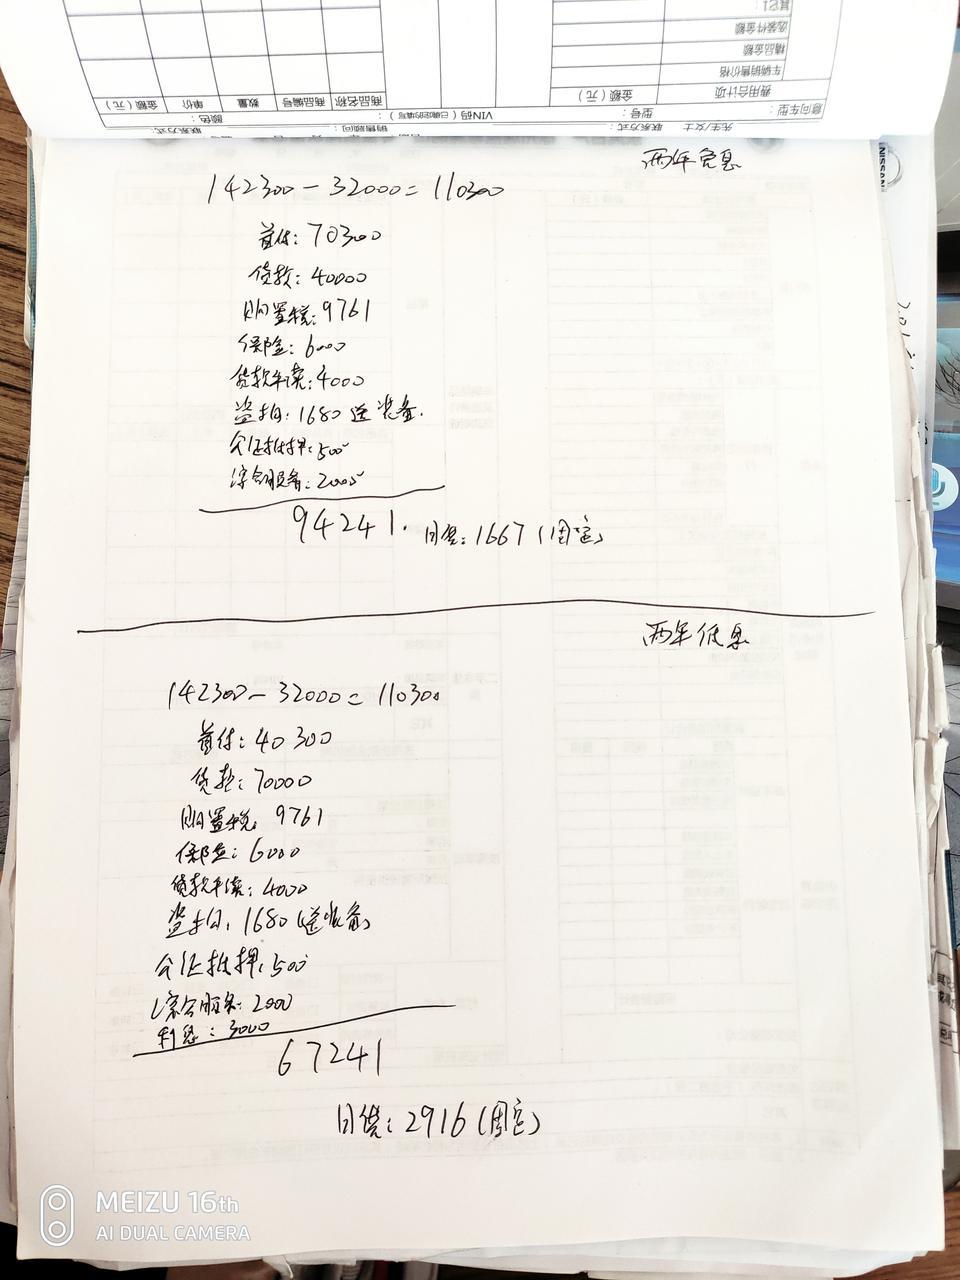 两年免息
142300-32000=110300
首付：70300
贷款：40000
购置税：9761
保险：6000
贷款手续：4000
盗抢：1680送装备.
公证抵押：500
综合服务：2000
94241.
月供：1667(固定)
两年低息
142300-32000=110300
首付：40300
贷款：70000
购置税：9761
保险：6000
贷款手续：4000
盗抢：1680(送装备)
公证抵押：500
综合服务：2000
利息：3000
67241
月供：2916(固定)
选装件金额
精品金额
车辆销售价格
费用合计项
金额（元）
商品名称
商品编号
数量
单价
金额（元）
意向车型：
型号：
VIN码（已确定的填写）：
颜色：
先生/女士
联系方式：
销售顾问：
联系方式：
NISSAN
MEIZU 16th
AI DUAL CAMERA